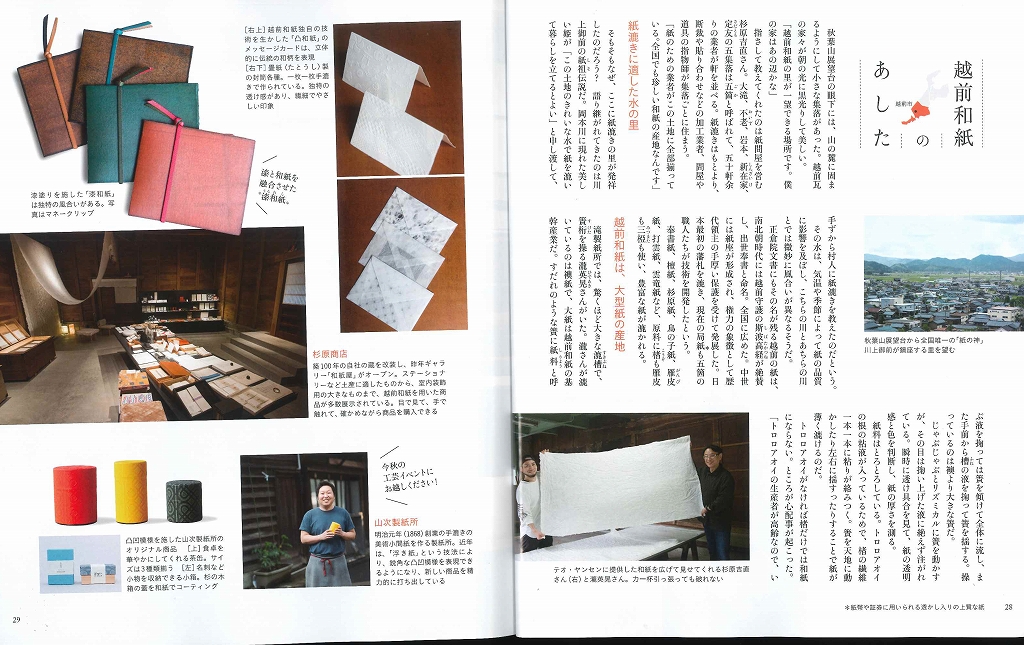 越前和紙
の
あした
越前市
秋葉山展望台の眼下には、山の麓に固ま
るようにして小さな集落があった。越前瓦
の家々が朝の光に黒光りして美しい。
「越前和紙の里が一望できる場所です。僕
の家はあの辺かな」
指さして教えてくれたのは紙問屋を営む
杉原吉直さん。大滝、不老、岩本、新在家、
定友の五集落は五箇と呼ばれて、五十軒余
りの業者が軒を並べる。紙漉きはもとより、
断裁や貼り合わせなどの加工業者、問屋や
道具の指物師が集落ごとに住まう。
「紙のための業者がこの土地に全部揃って
いる。全国でも珍しい和紙の産地なんです」
紙漉きに適した水の里
そもそもなぜ、ここに紙漉きの里が発祥
したのだろう？　語り継がれてきたのは川
上御前の紙祖伝説だ。岡本川に現れた美し
い姫が「この土地のきれいな水で紙を漉い
て暮らしを立てるとよい」と申し渡して、
手ずから村人に紙漉きを教えたのだという。
その水は、気温や季節によって紙の品質
に影響を及ぼし、こちらの川とあちらの川
とでは微妙に風合いが異なるそうだ。
正倉院文書にもその名が残る越前の紙は、
南北朝時代には越前守護の斯波高経が絶賛
し、出世奉書と命名。全国に広めた。中世
には紙座が形成され、権力の象徴として歴
代領主の手厚い保護を受けて発展した。日
本最初の藩札を漉き、現在の局紙*も五箇の
職人たちが技術を開発したという。
奉書紙、檀紙、杉原紙、鳥の子紙、雁皮
紙、打雲紙、雲竜紙など、原料に楮も雁皮
も三椏も使い、豊富な紙が漉かれる。
越前和紙は、大型紙の産地
滝製紙所では、驚くほど大きな漉槽で、
簀桁を操る瀧英晃さんがいた。瀧さんが漉
いているのは襖紙で、大紙は越前和紙の基
幹産業だ。すだれのような簀に紙料と呼
ぶ液を掬っては簀を傾けて全体に流し、ま
た手前から槽の液を掬って簀を揺する。操
っているのは襖より大きな簀だ。
じゃぶじゃぶとリズミカルに簀を動かす
が、その目は掬い上げた液に絶えず注がれ
ている。瞬時に透け具合を見て、紙の透明
感と色を判断し、紙の厚さを測る。
紙料はとろとろしている。トロロアオイ
の根の粘液が入っているためで、楮の繊維
一本一本に粘りが絡みつく。簀を天地に動
かしたり左右に揺すったりすることで紙が
薄く漉けるのだ。
トロロアオイがなければ楮だけでは和紙
にならない。ところが心配事が起こった。
「トロロアオイの生産者が高齢なので、い
秋葉山展望台から全国唯一の「紙の神」
川上御前が鎮座する里を望む
テオ・ヤンセンに提供した和紙を広げて見せてくれる杉原吉直
さん（右）と瀧英晃さん。力一杯引っ張っても破れない
＊紙幣や証券に用いられる透かし入りの上質な紙
28
[右上]越前和紙独自の技
術を生かした「凸和紙」の
メッセージカードは、立体
的に伝統の和柄を表現
[右下]畳紙（たとうし）製
の封筒各種。一枚一枚手漉
きで作られている。独特の
透け感があり、繊細でやさ
しい印象
漆と和紙を
融合させた
漆和紙。
漆塗りを施した「漆和紙」
は独特の風合いがある。写
真はマネークリップ
杉原商店
築100年の自社の蔵を改装し、昨年ギャラ
リー「和紙屋」がオープン。ステーショナ
リーなど土産に適したものから、室内装飾
用の大きなものまで、越前和紙を用いた商
品が多数展示されている。目で見て、手で
触れて、確かめながら商品を購入できる
凸凹模様を施した山次製紙所の
オリジナル商品　[上]食卓を
華やかにしてくれる茶缶。サイ
ズは3種類揃う　[左]名刺など
小物を収納できる小箱。杉の木
箱の蓋を和紙でコーティング
今秋の
工芸イベントに
お越しください！
山次製紙所
明治元年（1868）創業の手漉きの
美術小間紙を作る製紙所。近年
は、「浮き紙」という技法によ
り、鋭角な凸凹模様を表現でき
るようになり、新しい商品を精
力的に打ち出している
29